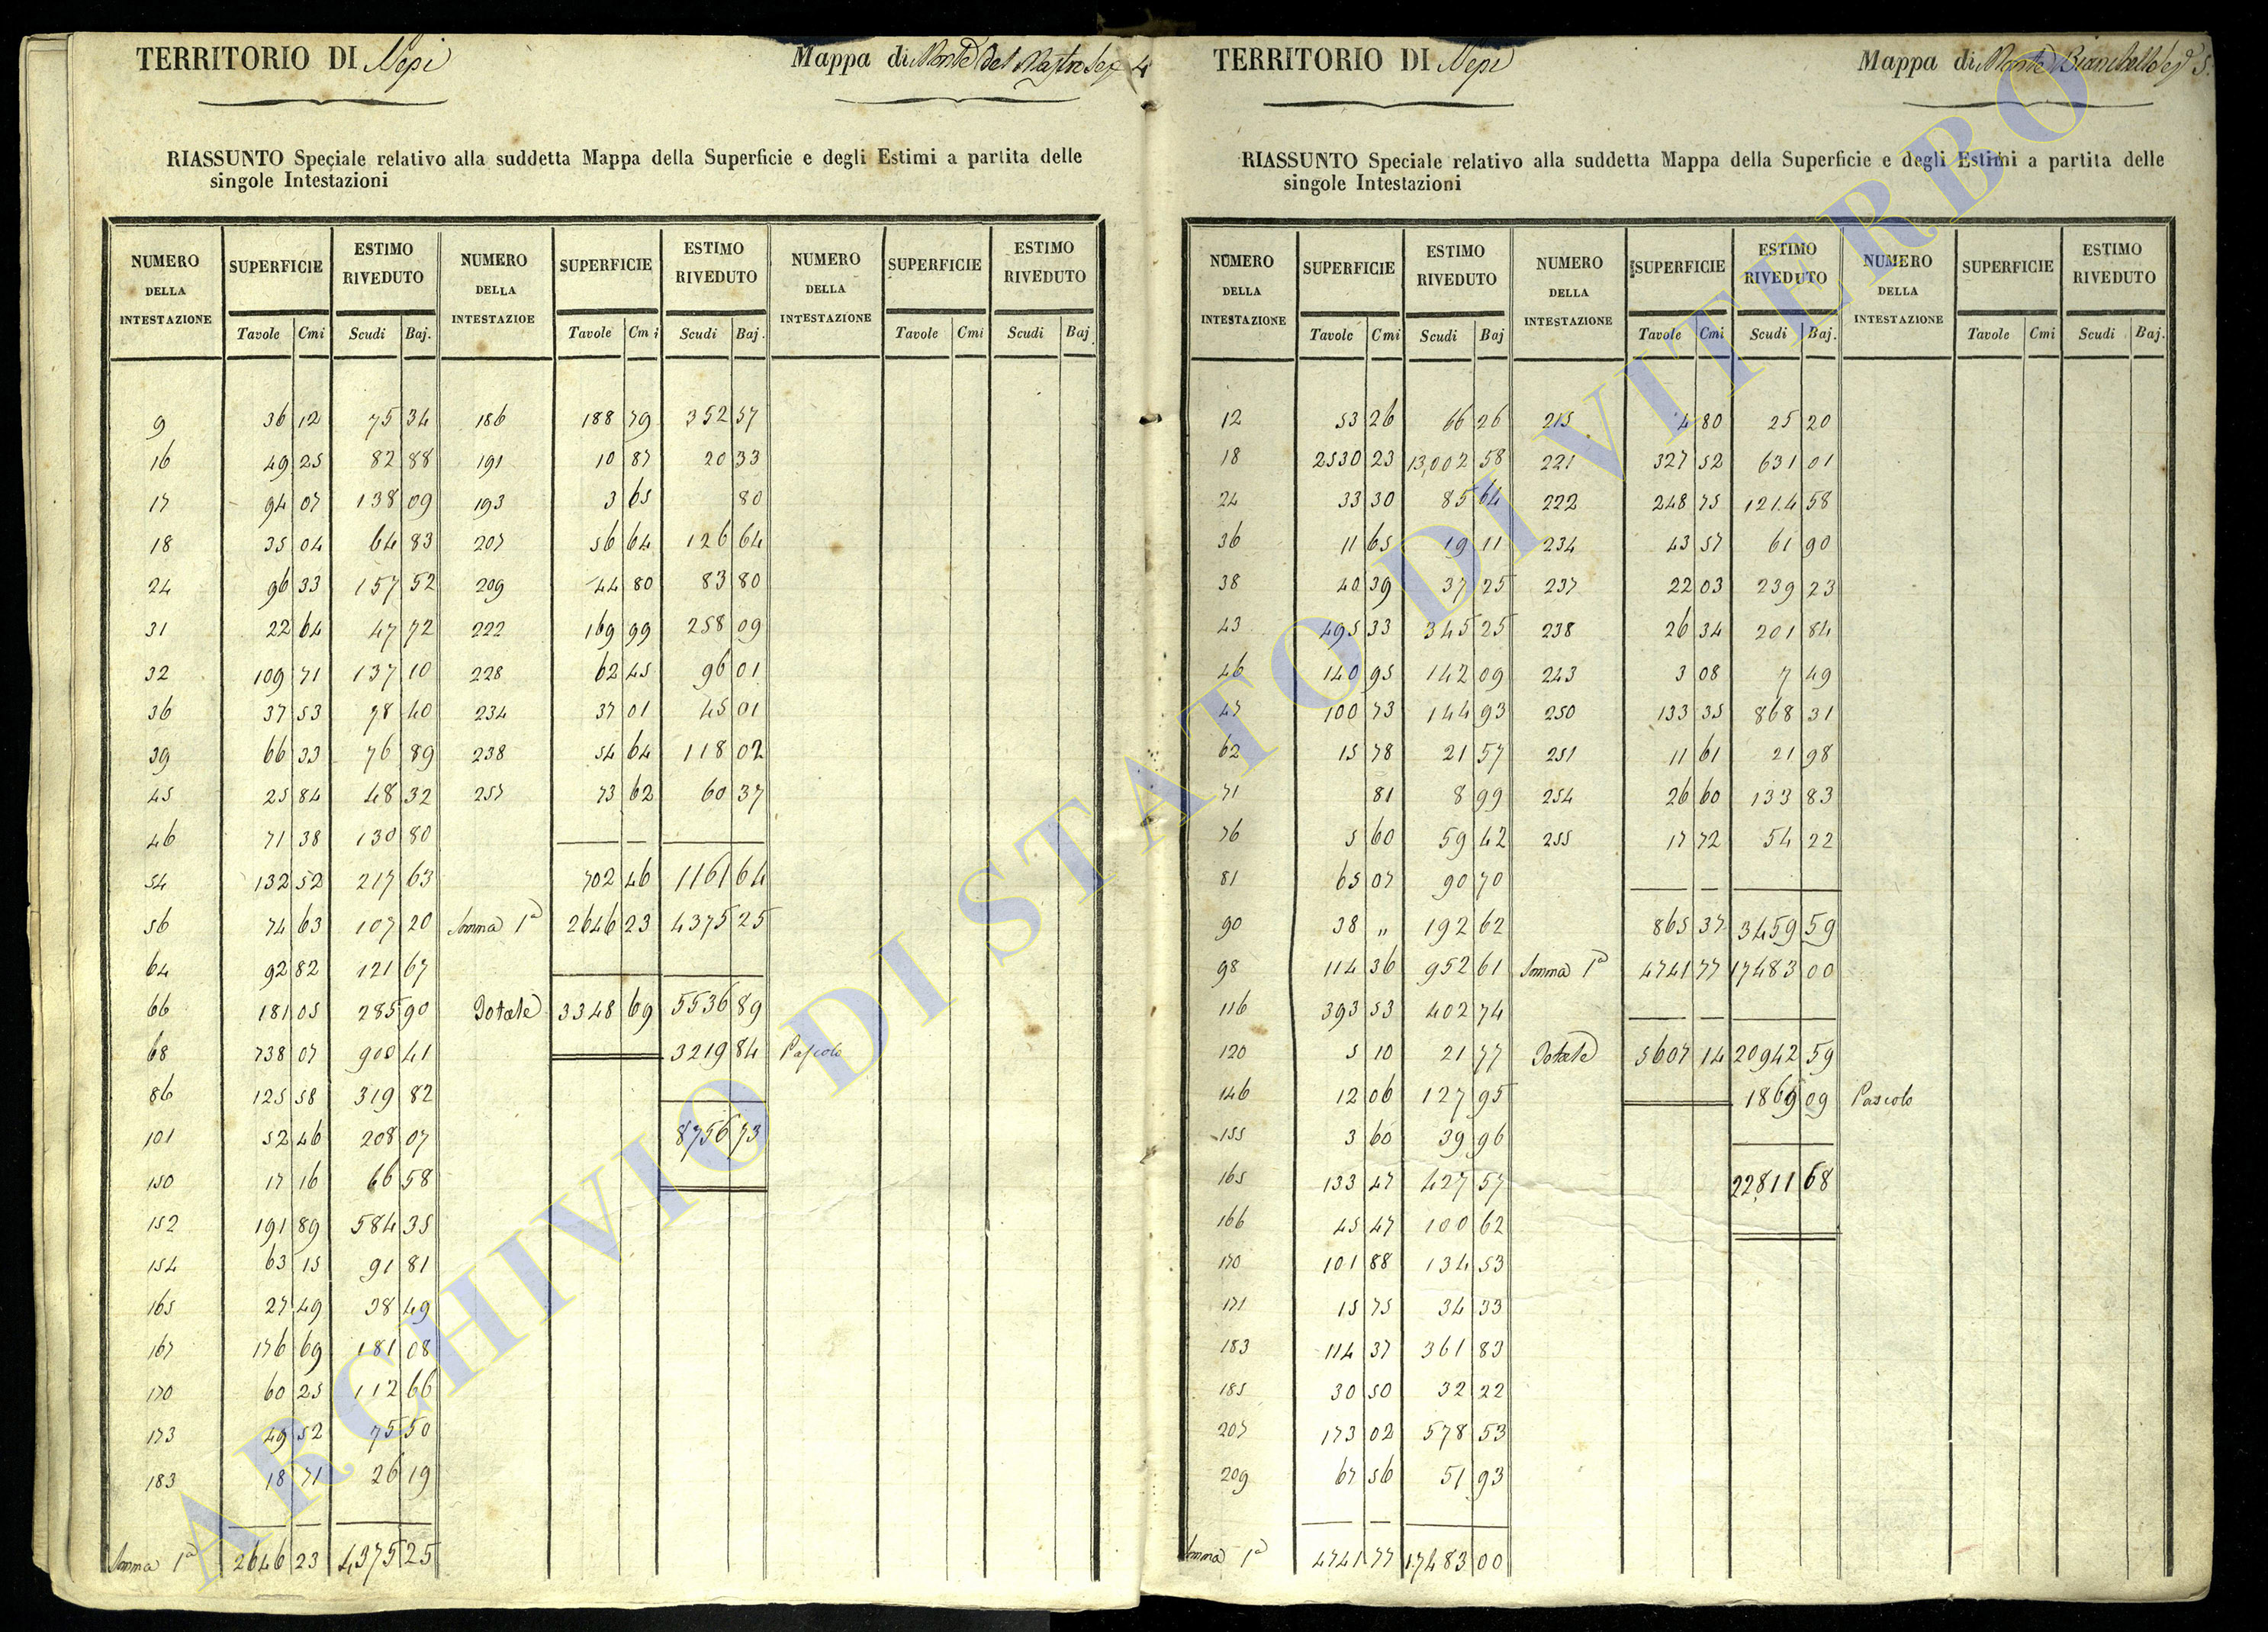 TERRITORIO DI Nepi
Mappa di Monte del Mastro Sez 4
RIASSUNTO Speciale relativo alla suddetta Mappa della Superficie e degli Estimi a partita delle
singole Intestazioni
NUMERO DELLA INTESTAZIONE SUPERFICIE ESTIMO RIVEDUTO NUMERO DELLA INTESTAZIOE SUPERFICIE ESTIMO RIVEDUTO NUMERO DELLA INTESTAZIONE SUPERFICIE ESTIMO RIVEDUTO
Tavole Cmi Scudi Baj. Tavole Cmi Scudi Baj. Tavole Cmi Scudi Baj.
9 36 12 75 34 186 188 79 352 57
16 49 25 82 88 191 10 87 20 33
17 94 07 138 09 193 3 65 80
18 35 04 64 83 207 56 64 126 64
24 96 33 157 52 209 44 80 83 80
31 22 64 47 72 222 169 99 258 09
32 109 71 137 10 228 62 45 96 01
36 37 53 78 40 234 37 01 45 01
39 66 33 76 89 238 54 64 118 02
45 25 84 48 32 257 73 62 60 37
46 71 38 130 80
54 132 52 217 63 702 46 1161 64
56 74 63 107 20 Somma 1a 2646 23 4375 25
64 92 82 121 67
66 181 05 285 90 Totale 3348 69 5536 89
68 738 07 900 41 3219 84 Pascolo
86 125 58 319 82
101 52 46 208 07 8756 73
150 17 16 66 58
152 191 89 584 35
154 63 15 91 81
165 27 49 38 49
167 176 69 181 08
170 60 25 112 66
173 49 52 75 50
183 18 71 26 19
Somma 1a 2646 23 4375 25
TERRITORIO DI Nepi
Mappa di Monte 5.
RIASSUNTO Speciale relativo alla suddetta Mappa della Superficie e degli Estimi a partita delle
singole Intestazioni
NUMERO DELLA INTESTAZIONE SUPERFICIE ESTIMO RIVEDUTO NUMERO DELLA INTESTAZIONE SUPERFICIE ESTIMO RIVEDUTO NUMERO DELLA INTESTAZIONE SUPERFICIE ESTIMO RIVEDUTO
Tavole Cmi Scudi Baj Tavole Cmi Scudi Baj. Tavole Cmi Scudi Baj.
12 53 26 66 26 215 4 80 25 20
18 2530 23 13,002 58 221 327 52 631 01
24 33 30 85 64 222 248 75 1214 58
36 11 65 19 11 234 43 57 61 90
38 40 39 37 25 237 22 03 239 23
43 495 33 345 25 238 26 34 201 84
46 140 95 142 09 243 3 08 7 49
47 100 73 144 93 250 133 35 868 31
62 15 78 21 57 251 11 61 21 98
71 81 8 99 254 26 60 133 83
76 5 60 59 42 255 17 72 54 22
81 65 07 90 70
90 38 „ 192 62 865 37 3459 59
98 114 36 952 61 Somma 1a 4741 77 17483 00
116 393 53 402 74
120 5 10 21 77 Totale 5607 14 20942 59
146 12 06 127 95 1869 09 Pascolo
155 3 60 39 96
165 133 47 427 57 22,811 68
166 45 47 100 62
170 101 88 134 53
171 15 75 34 33
183 114 37 361 83
185 30 50 32 22
207 173 02 578 53
209 67 56 51 93
Somma 1a 4741 77 17483 00
ARCHIVIO DI STATO DI VITERBO